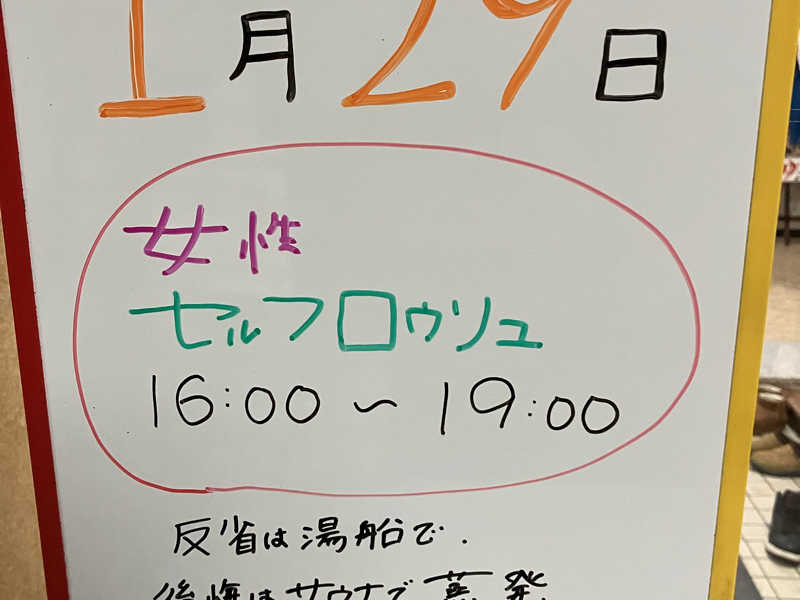 1月29日
女性
セルフロウリュ
16:00～19:00
反省は湯船で.
後悔はサウナで蒸発